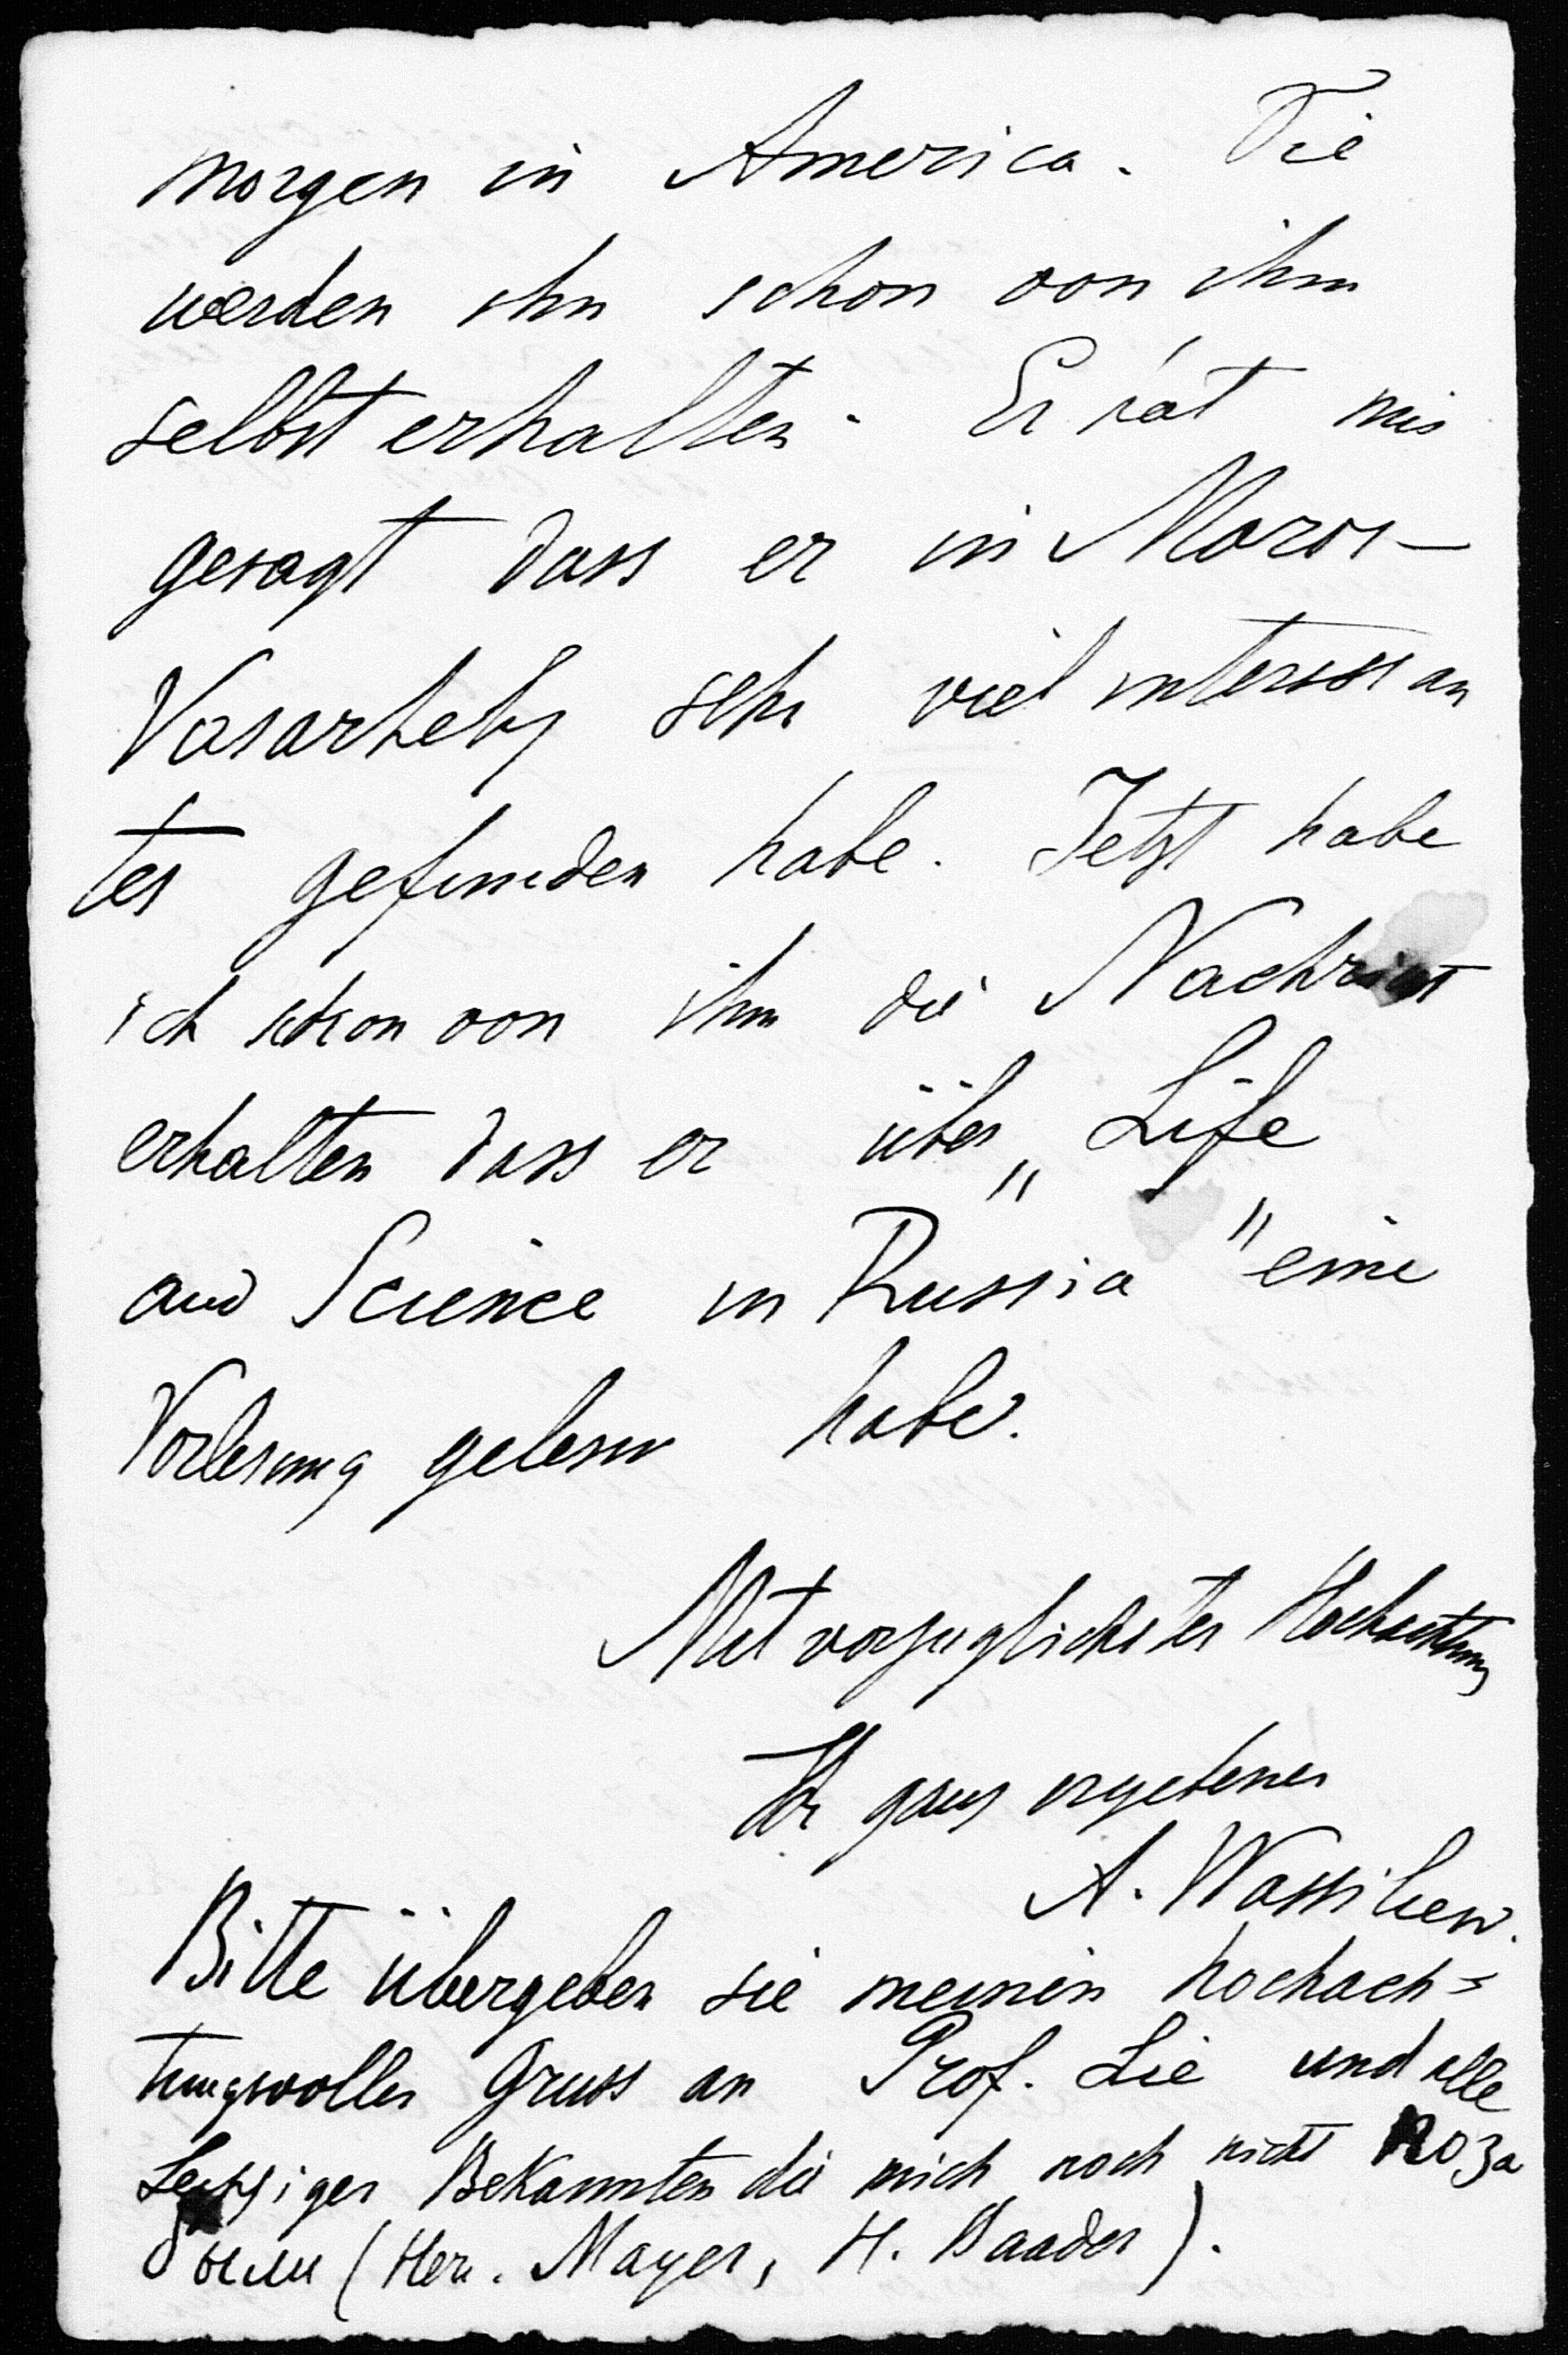 morgen in America. Sie
werden ihn schon von ihm
selbst erhalten. Er hat mir
gesagt dass er in Maros-
Vasarhely sehr viel interessan
tes gefunden habe. Jetzt habe
ich schon von ihm die Nachricht
erhalten dass er über „Life
and Science in Russia" eine
Vorlesung gelesen habe.
Mit vorzuglichster Hochachtung
Ihr ganz ergebener
A. Wassiliew.
Bitte übergeben sie meinen hochach=
tungsvollen Gruss an Prof. Lie und alle
Leipziger Bekannten die mich noch nicht поза
были (Herr. Mayer, H. Baader).